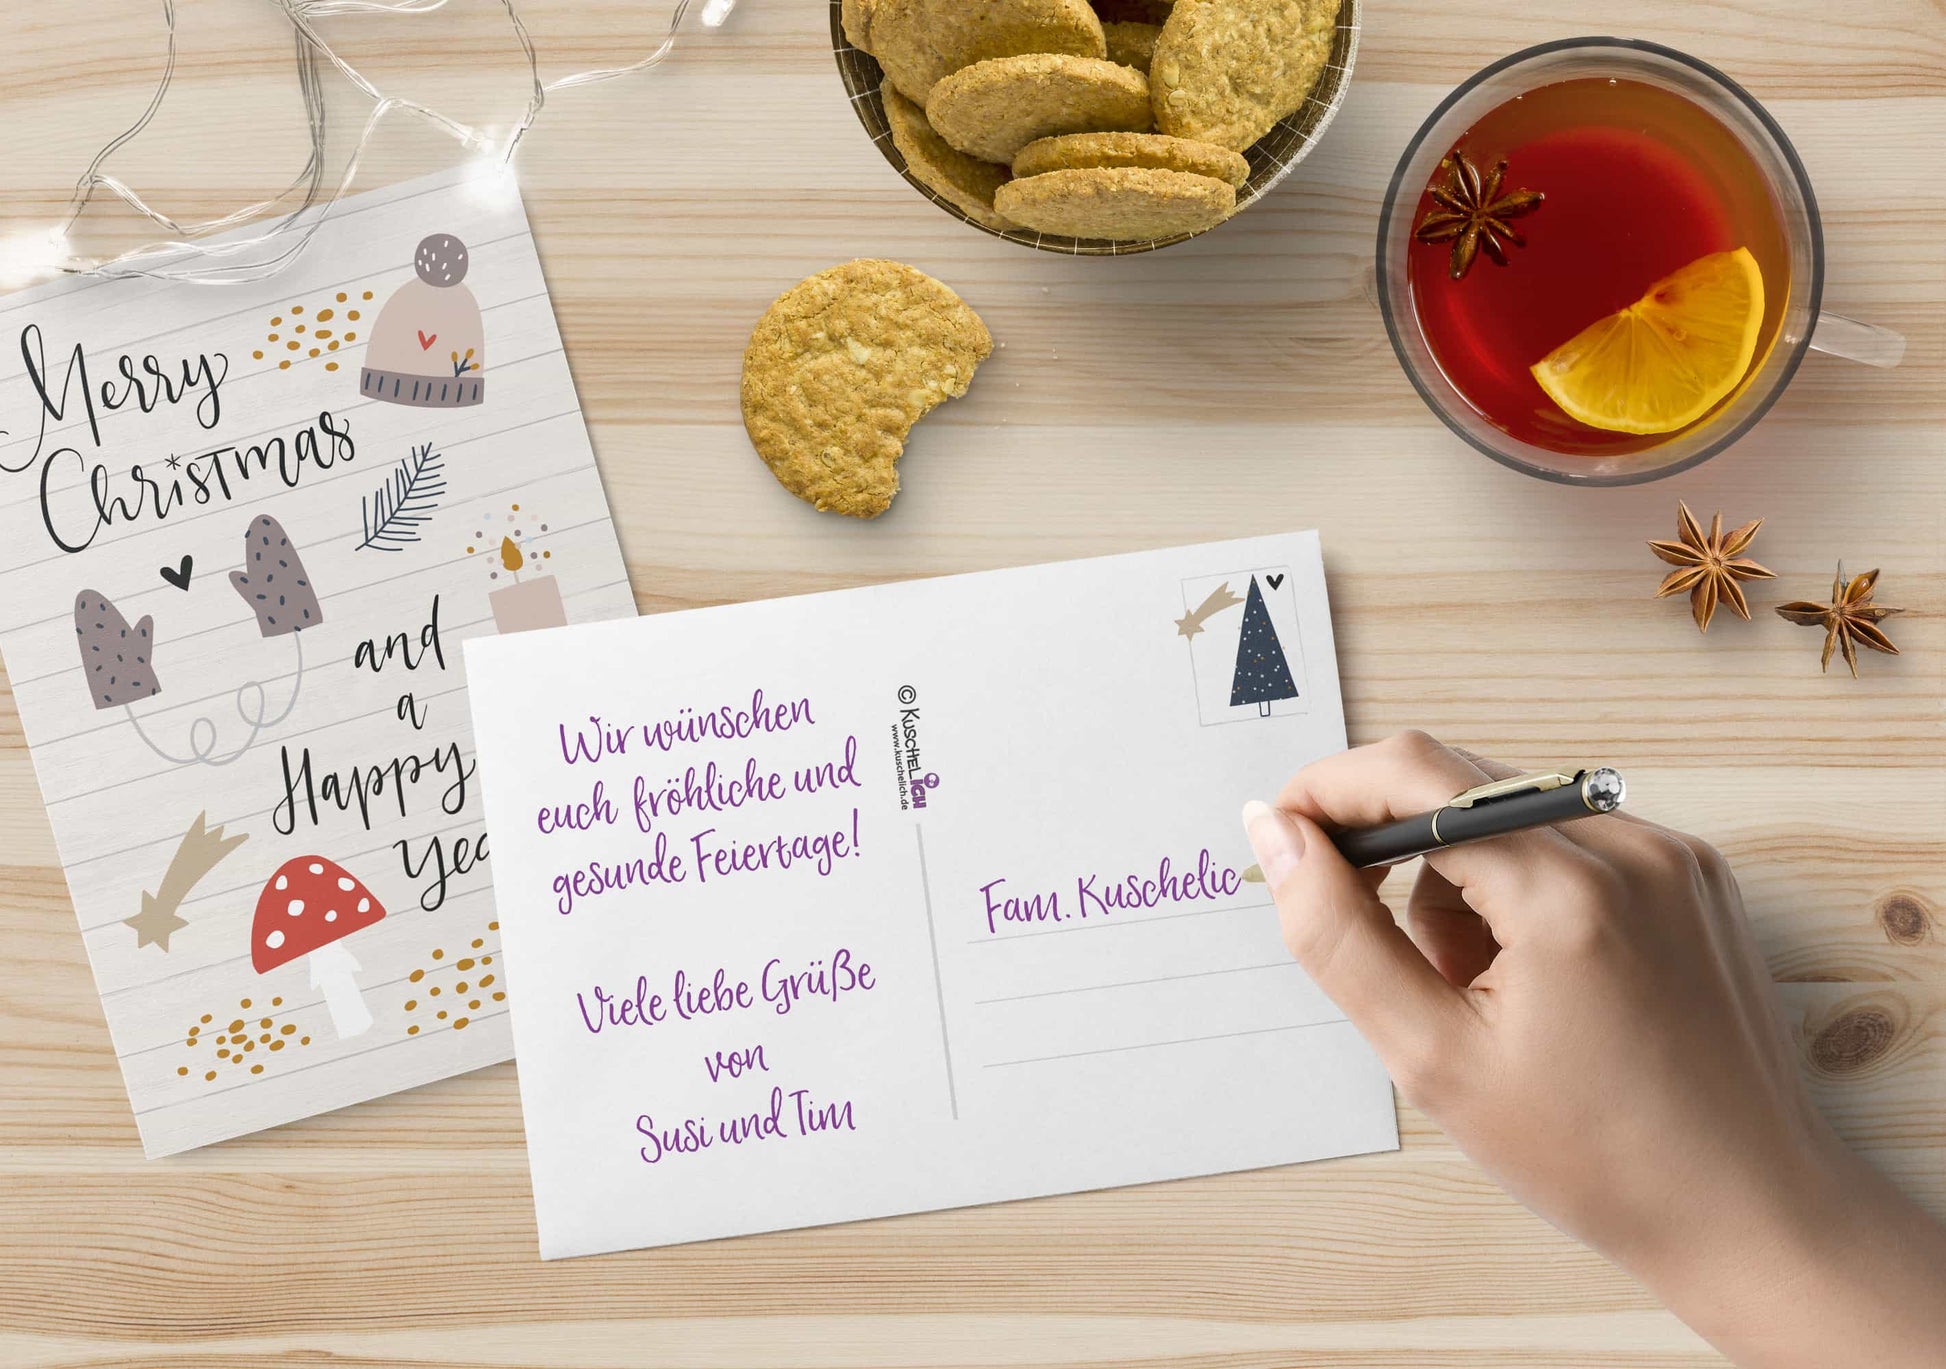 Merry
Christmas
and
a
Happy
Wir wünschen
euch fröhliche und
gesunde Feiertage!
Viele liebe Grüße
von
Susi und Tim
© KUSCHELICH
www.kuschelich.de
Fam. Kuschelic